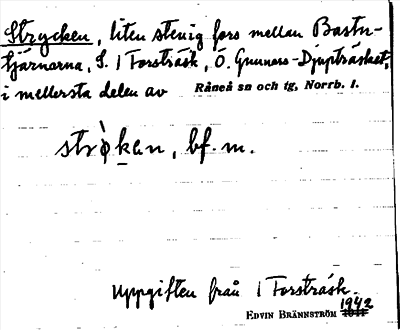 Strycken, liten stenig fors mellan Bastu-
tjärnarna, S. i Forsträsk, Ö. Gunnars-Djupträsket,
i mellersta delen av Råneå sn och tg, Norrb. l.
strø̀kan, bf. m.
Uppgiften från i Forsträsk.
EDVIN BRÄNNSTRÖM 1942